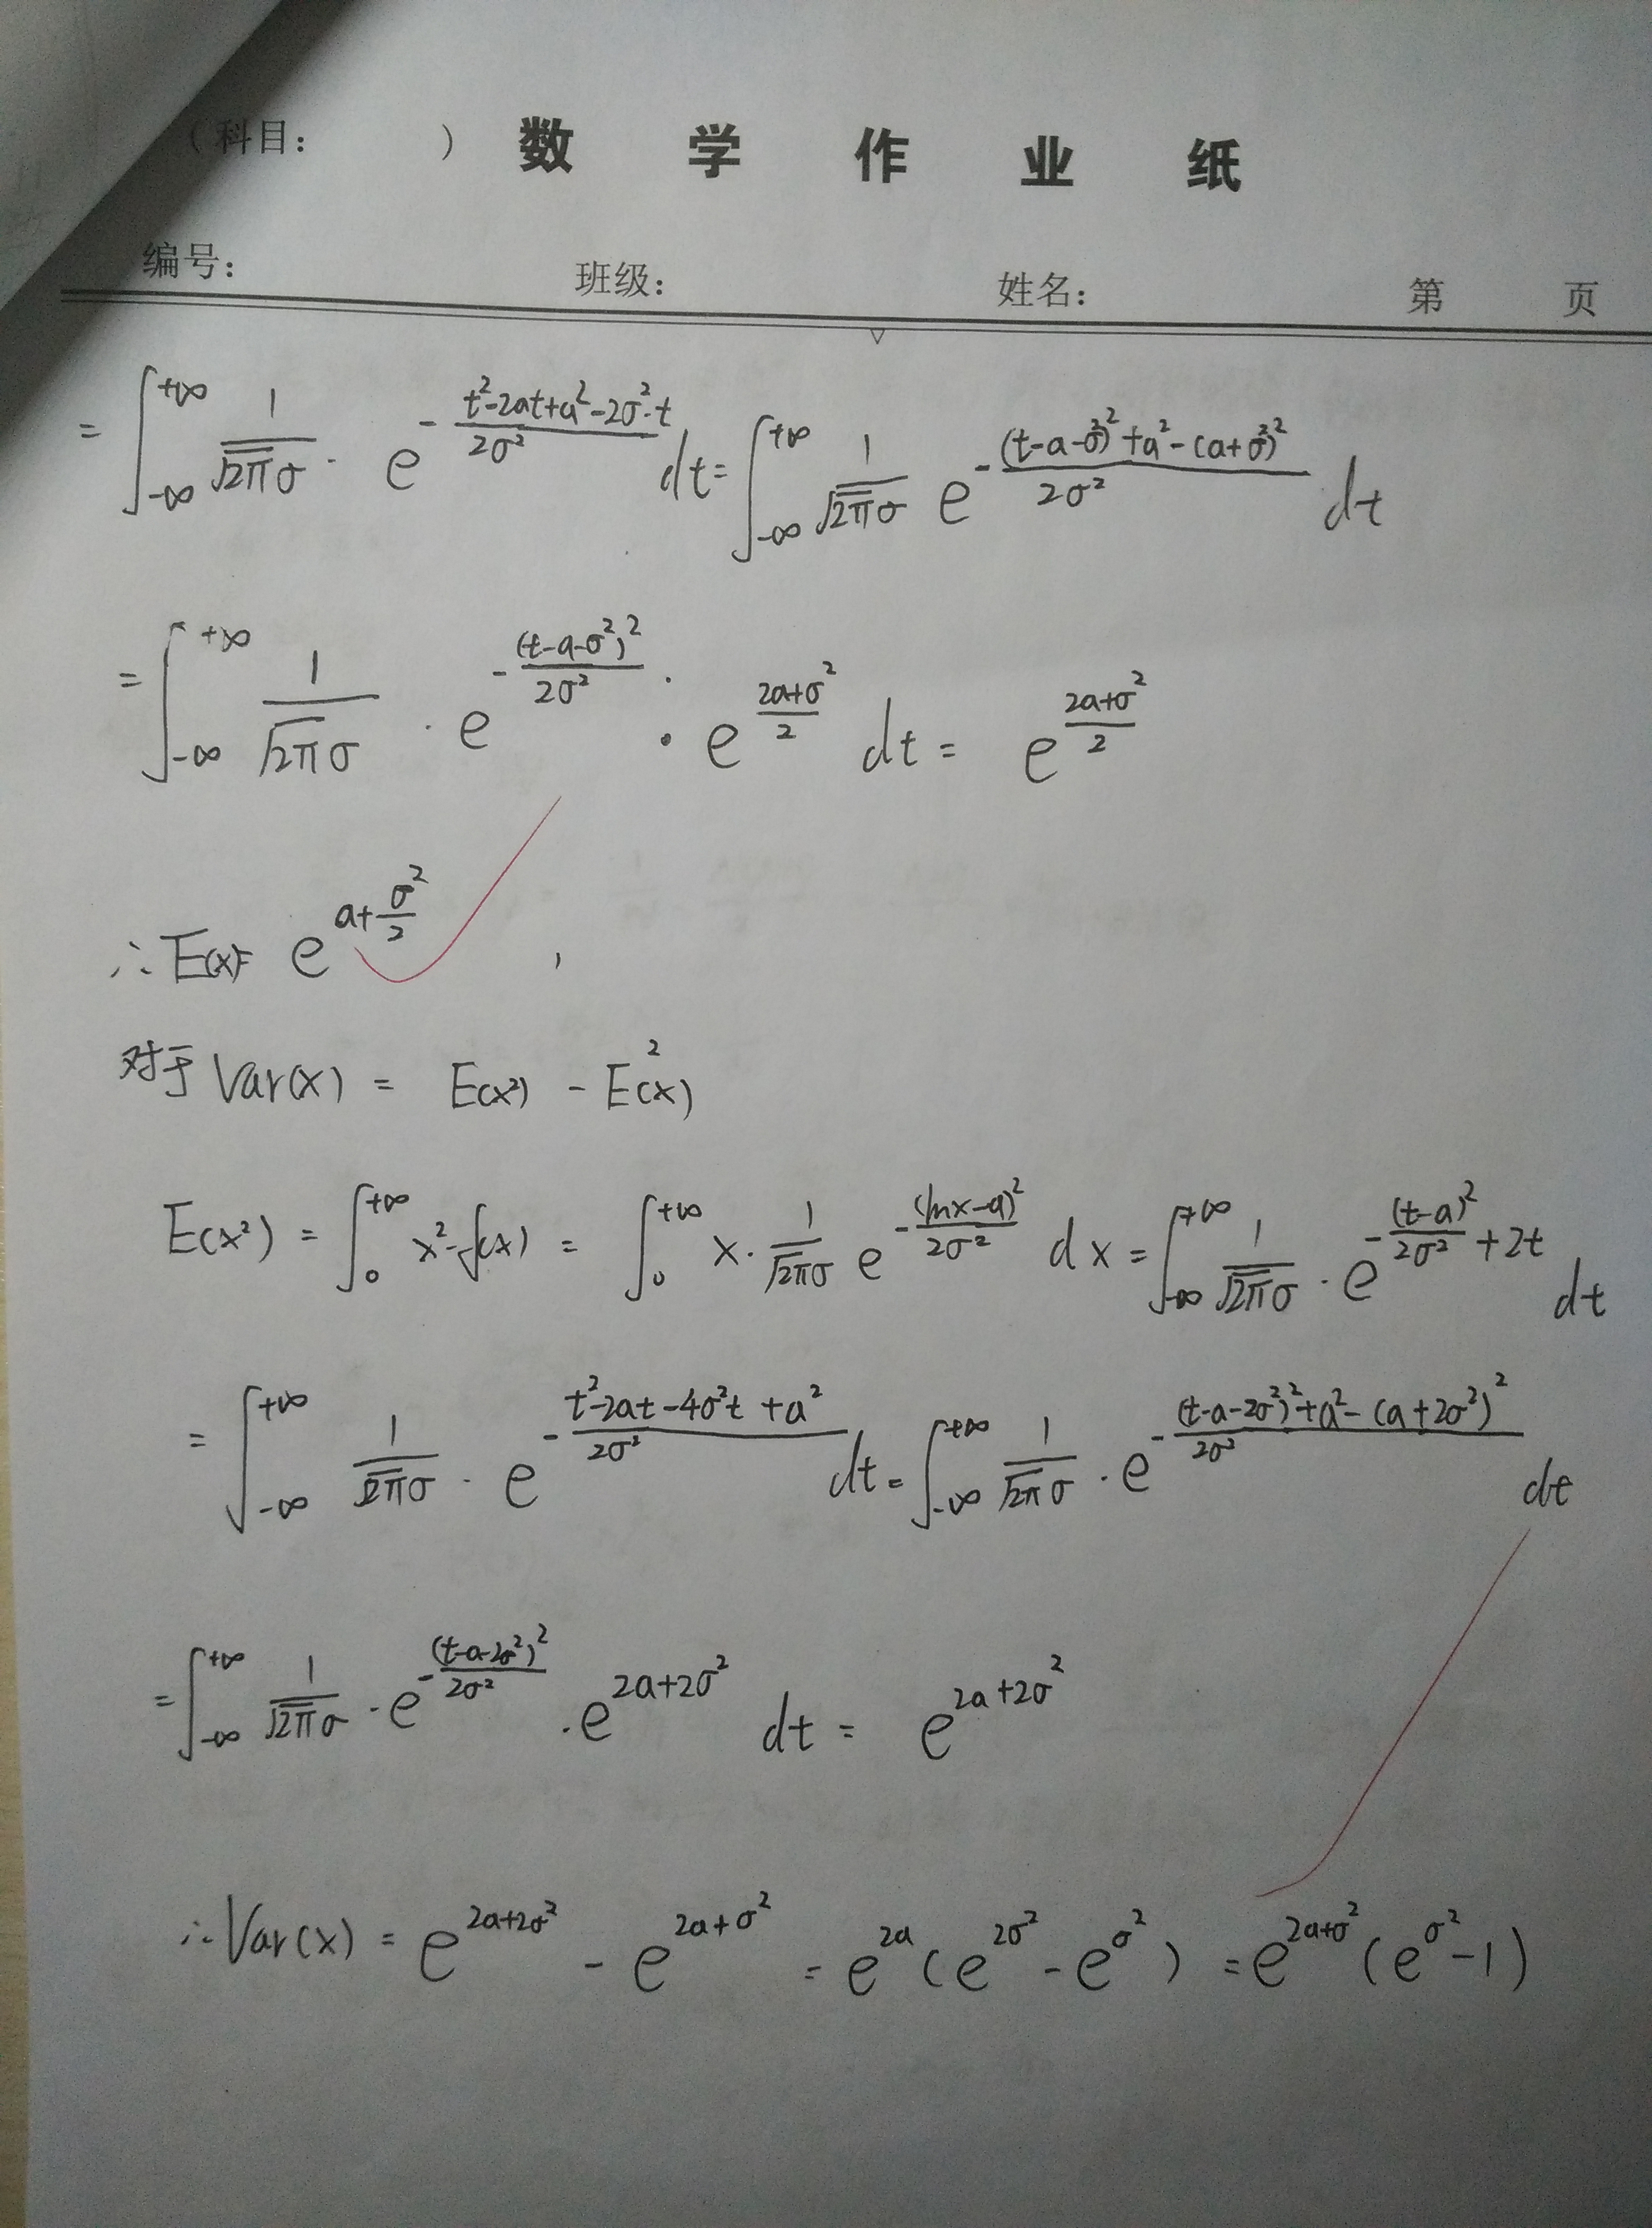 （科目： ） 数 学 作 业 纸
编号： 班级： 姓名： 第 页
= ∫_{-∞}^{+∞} \frac{1}{\sqrt{2π}σ} · e^{-\frac{t²-2at+a²-2σ²·t}{2σ²}} dt = ∫_{-∞}^{+∞} \frac{1}{\sqrt{2π}σ} e^{-\frac{(t-a-σ²)²+a²-(a+σ²)²}{2σ²}} dt
= ∫_{-∞}^{+∞} \frac{1}{\sqrt{2π}σ} · e^{-\frac{(t-a-σ²)²}{2σ²}} · e^{\frac{2a+σ²}{2}} dt = e^{\frac{2a+σ²}{2}}
∴ E(x)= e^{a+\frac{σ²}{2}} ,
对于 Var(x) = E(x²) - E²(x)
E(x²) = ∫_{0}^{+∞} x²·f(x) = ∫_{0}^{+∞} x · \frac{1}{\sqrt{2π}σ} e^{-\frac{(lnx-a)²}{2σ²}} dx = ∫_{-∞}^{+∞} \frac{1}{\sqrt{2π}σ} · e^{-\frac{(t-a)²}{2σ²}+2t} dt
= ∫_{-∞}^{+∞} \frac{1}{\sqrt{2π}σ} · e^{-\frac{t²-2at-4σ²t+a²}{2σ²}} dt = ∫_{-∞}^{+∞} \frac{1}{\sqrt{2π}σ} · e^{-\frac{(t-a-2σ²)²+a²-(a+2σ²)²}{2σ²}} dt
= ∫_{-∞}^{+∞} \frac{1}{\sqrt{2π}σ} · e^{-\frac{(t-a-2σ²)²}{2σ²}} · e^{2a+2σ²} dt = e^{2a+2σ²}
∴ Var(x) = e^{2a+2σ²} - e^{2a+σ²} = e^{2a}(e^{2σ²} - e^{σ²}) = e^{2a+σ²}(e^{σ²}-1)